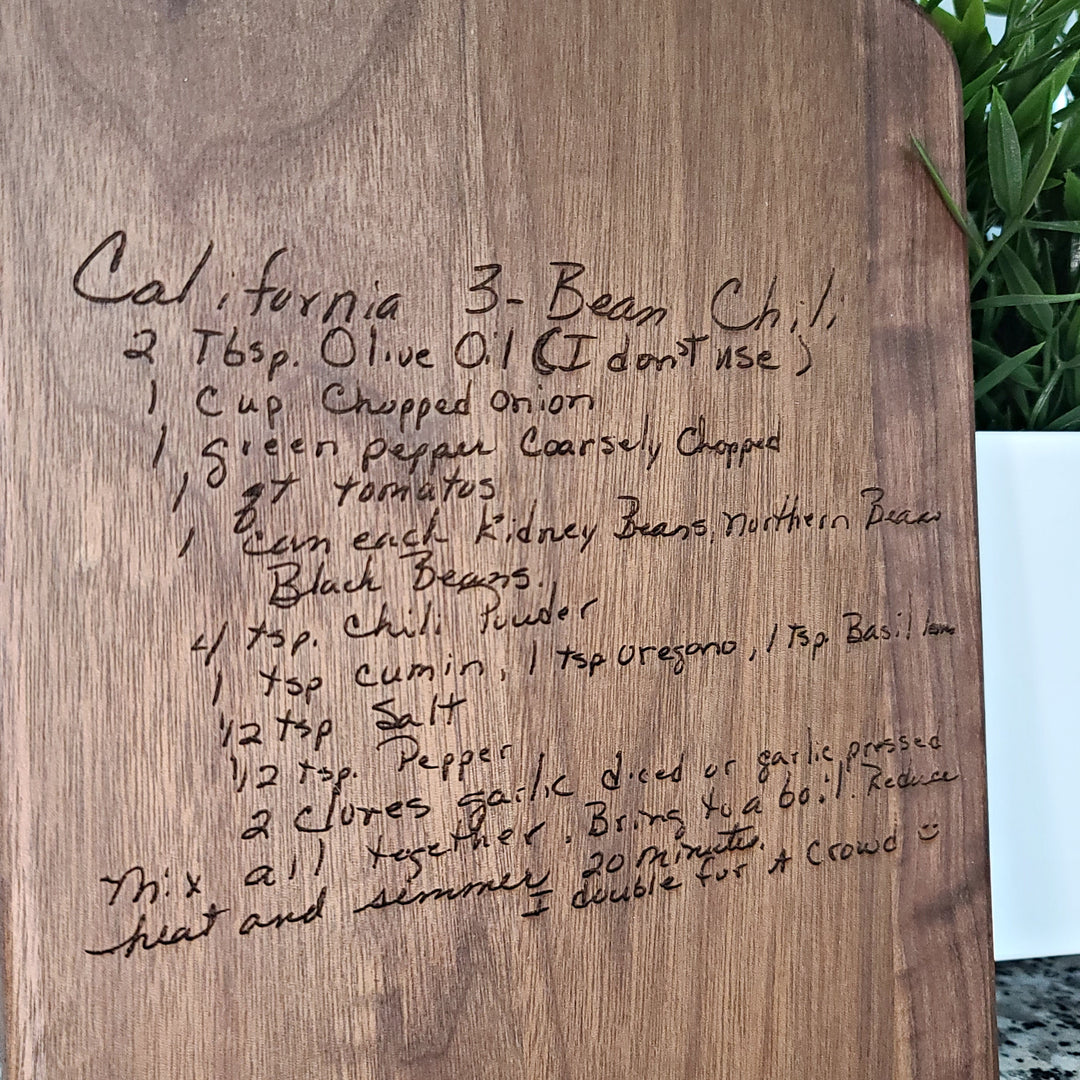 California 3-Bean Chili
2 Tbsp. Olive Oil (I don't use)
1 Cup Chopped onion
1 green pepper Coarsely Chopped
1 qt tomatos
1 can each Kidney Beans, Northern Beans
Black Beans.
4 tsp. Chili Powder
1 tsp cumin, 1 tsp oregano, 1 Tsp. Basil
1/2 tsp Salt
1/2 tsp. Pepper
2 cloves garlic diced or garlic pressed
Mix all together. Bring to a boil. Reduce
heat and simmer 20 minutes.
I double for A Crowd